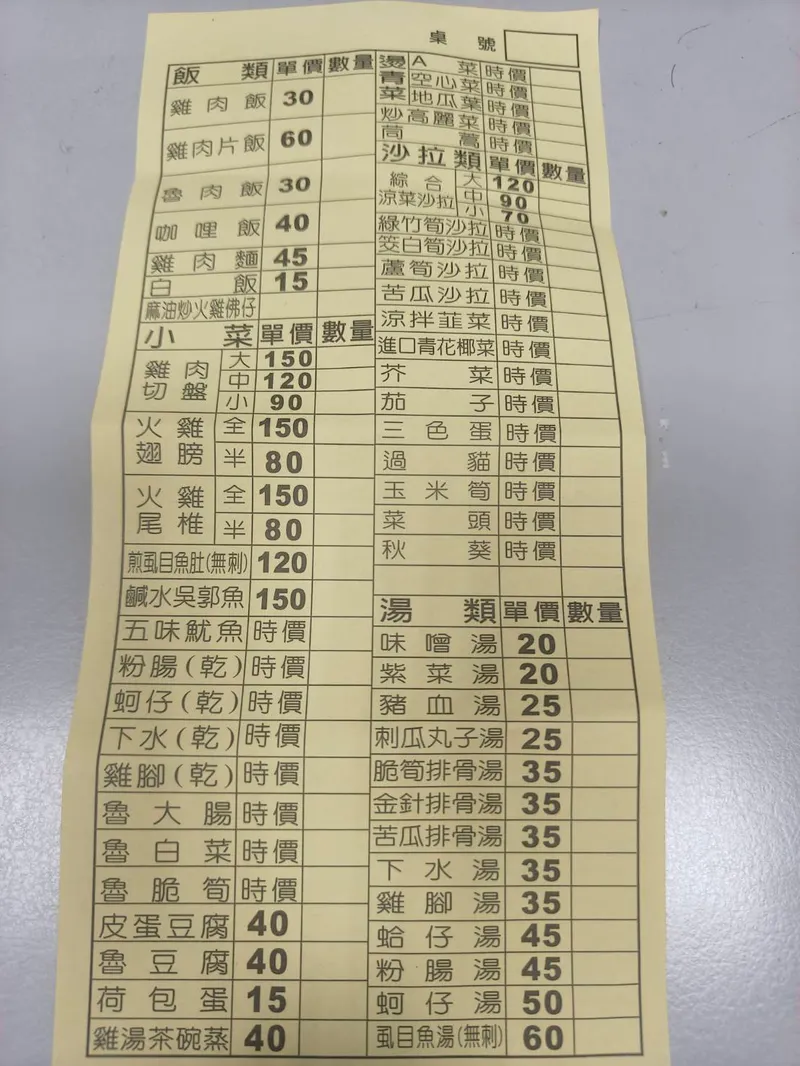 桌號
飯類 單價 數量
雞肉飯 30
雞肉片飯 60
魯肉飯 30
咖哩飯 40
雞肉麵 45
白飯 15
麻油炒火雞佛仔
小菜 單價 數量
雞肉切盤 大 150
中 120
小 90
火雞翅膀 全 150
半 80
火雞尾椎 全 150
半 80
煎虱目魚肚(無刺) 120
鹹水吳郭魚 150
五味魷魚 時價
粉腸(乾) 時價
蚵仔(乾) 時價
下水(乾) 時價
雞腳(乾) 時價
魯大腸 時價
魯白菜 時價
魯脆筍 時價
皮蛋豆腐 40
魯豆腐 40
荷包蛋 15
雞湯茶碗蒸 40
燙青菜 A菜 時價
空心菜 時價
地瓜葉 時價
炒高麗菜 時價
茼蒿 時價
沙拉類 單價 數量
綜合涼菜沙拉 大 120
中 90
小 70
綠竹筍沙拉 時價
筊白筍沙拉 時價
蘆筍沙拉 時價
苦瓜沙拉 時價
涼拌韮菜 時價
進口青花椰菜 時價
芥菜 時價
茄子 時價
三色蛋 時價
過貓 時價
玉米筍 時價
菜頭 時價
秋葵 時價
湯類 單價 數量
味噌湯 20
紫菜湯 20
豬血湯 25
刺瓜丸子湯 25
脆筍排骨湯 35
金針排骨湯 35
苦瓜排骨湯 35
下水湯 35
雞腳湯 35
蛤仔湯 45
粉腸湯 45
蚵仔湯 50
虱目魚湯(無刺) 60